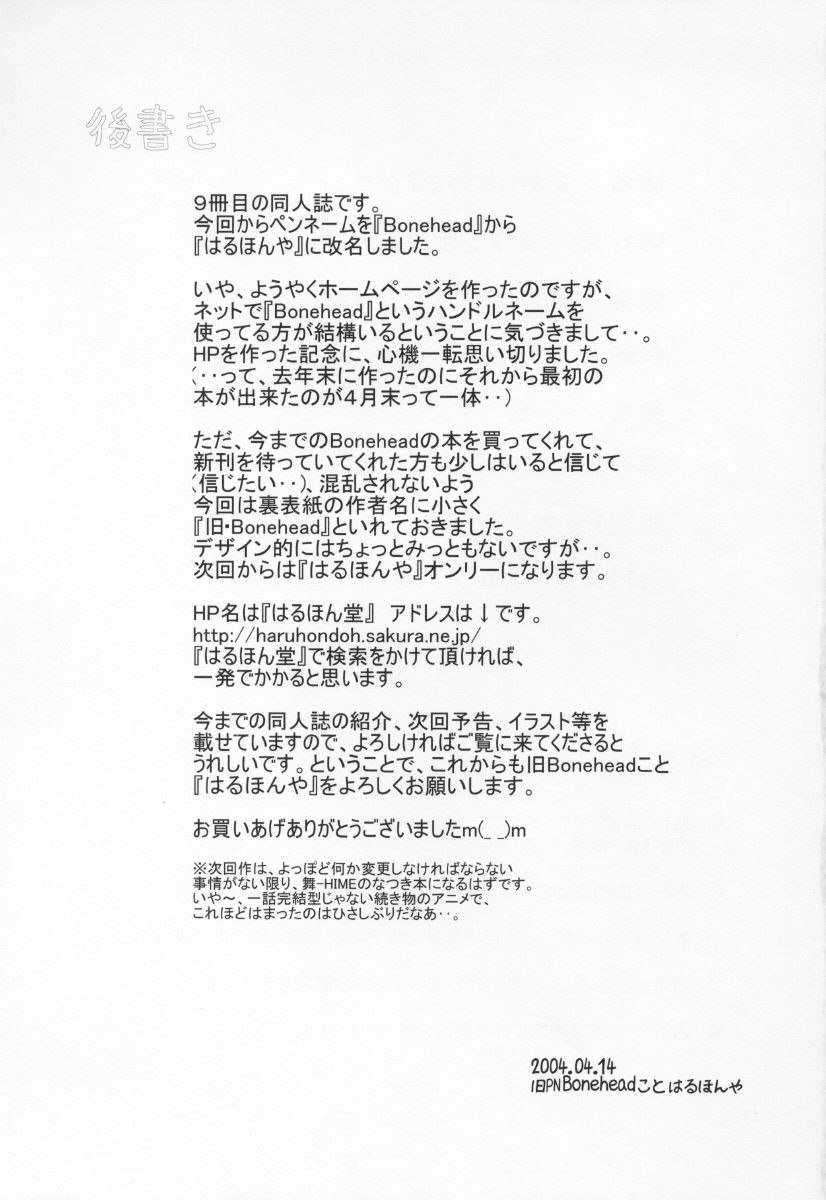 後書き
９冊目の同人誌です。
今回からペンネームを『Bonehead』から
『はるほんや』に改名しました。
いや、ようやくホームページを作ったのですが、
ネットで『Bonehead』というハンドルネームを
使ってる方が結構いるということに気づきまして‥。
HPを作った記念に、心機一転思い切りました。
（‥って、去年末に作ったのにそれから最初の
本が出来たのが４月末って一体‥）
ただ、今までのBoneheadの本を買ってくれて、
新刊を待っていてくれた方も少しはいると信じて
（信じたい‥）、混乱されないよう
今回は裏表紙の作者名に小さく
『旧・Bonehead』といれておきました。
デザイン的にはちょっとみっともないですが‥。
次回からは『はるほんや』オンリーになります。
HP名は『はるほん堂』　アドレスは↓です。
http://haruhondoh.sakura.ne.jp/
『はるほん堂』で検索をかけて頂ければ、
一発でかかると思います。
今までの同人誌の紹介、次回予告、イラスト等を
載せていますので、よろしければご覧に来てくださると
うれしいです。ということで、これからも旧Boneheadこと
『はるほんや』をよろしくお願いします。
お買いあげありがとうございましたm(_ _)m
※次回作は、よっぽど何か変更しなければならない
事情がない限り、舞-HIMEのなつき本になるはずです。
いや～、一話完結型じゃない続き物のアニメで、
これほどはまったのはひさしぶりだなあ‥。
2004.04.14
旧PN Boneheadこと はるほんや